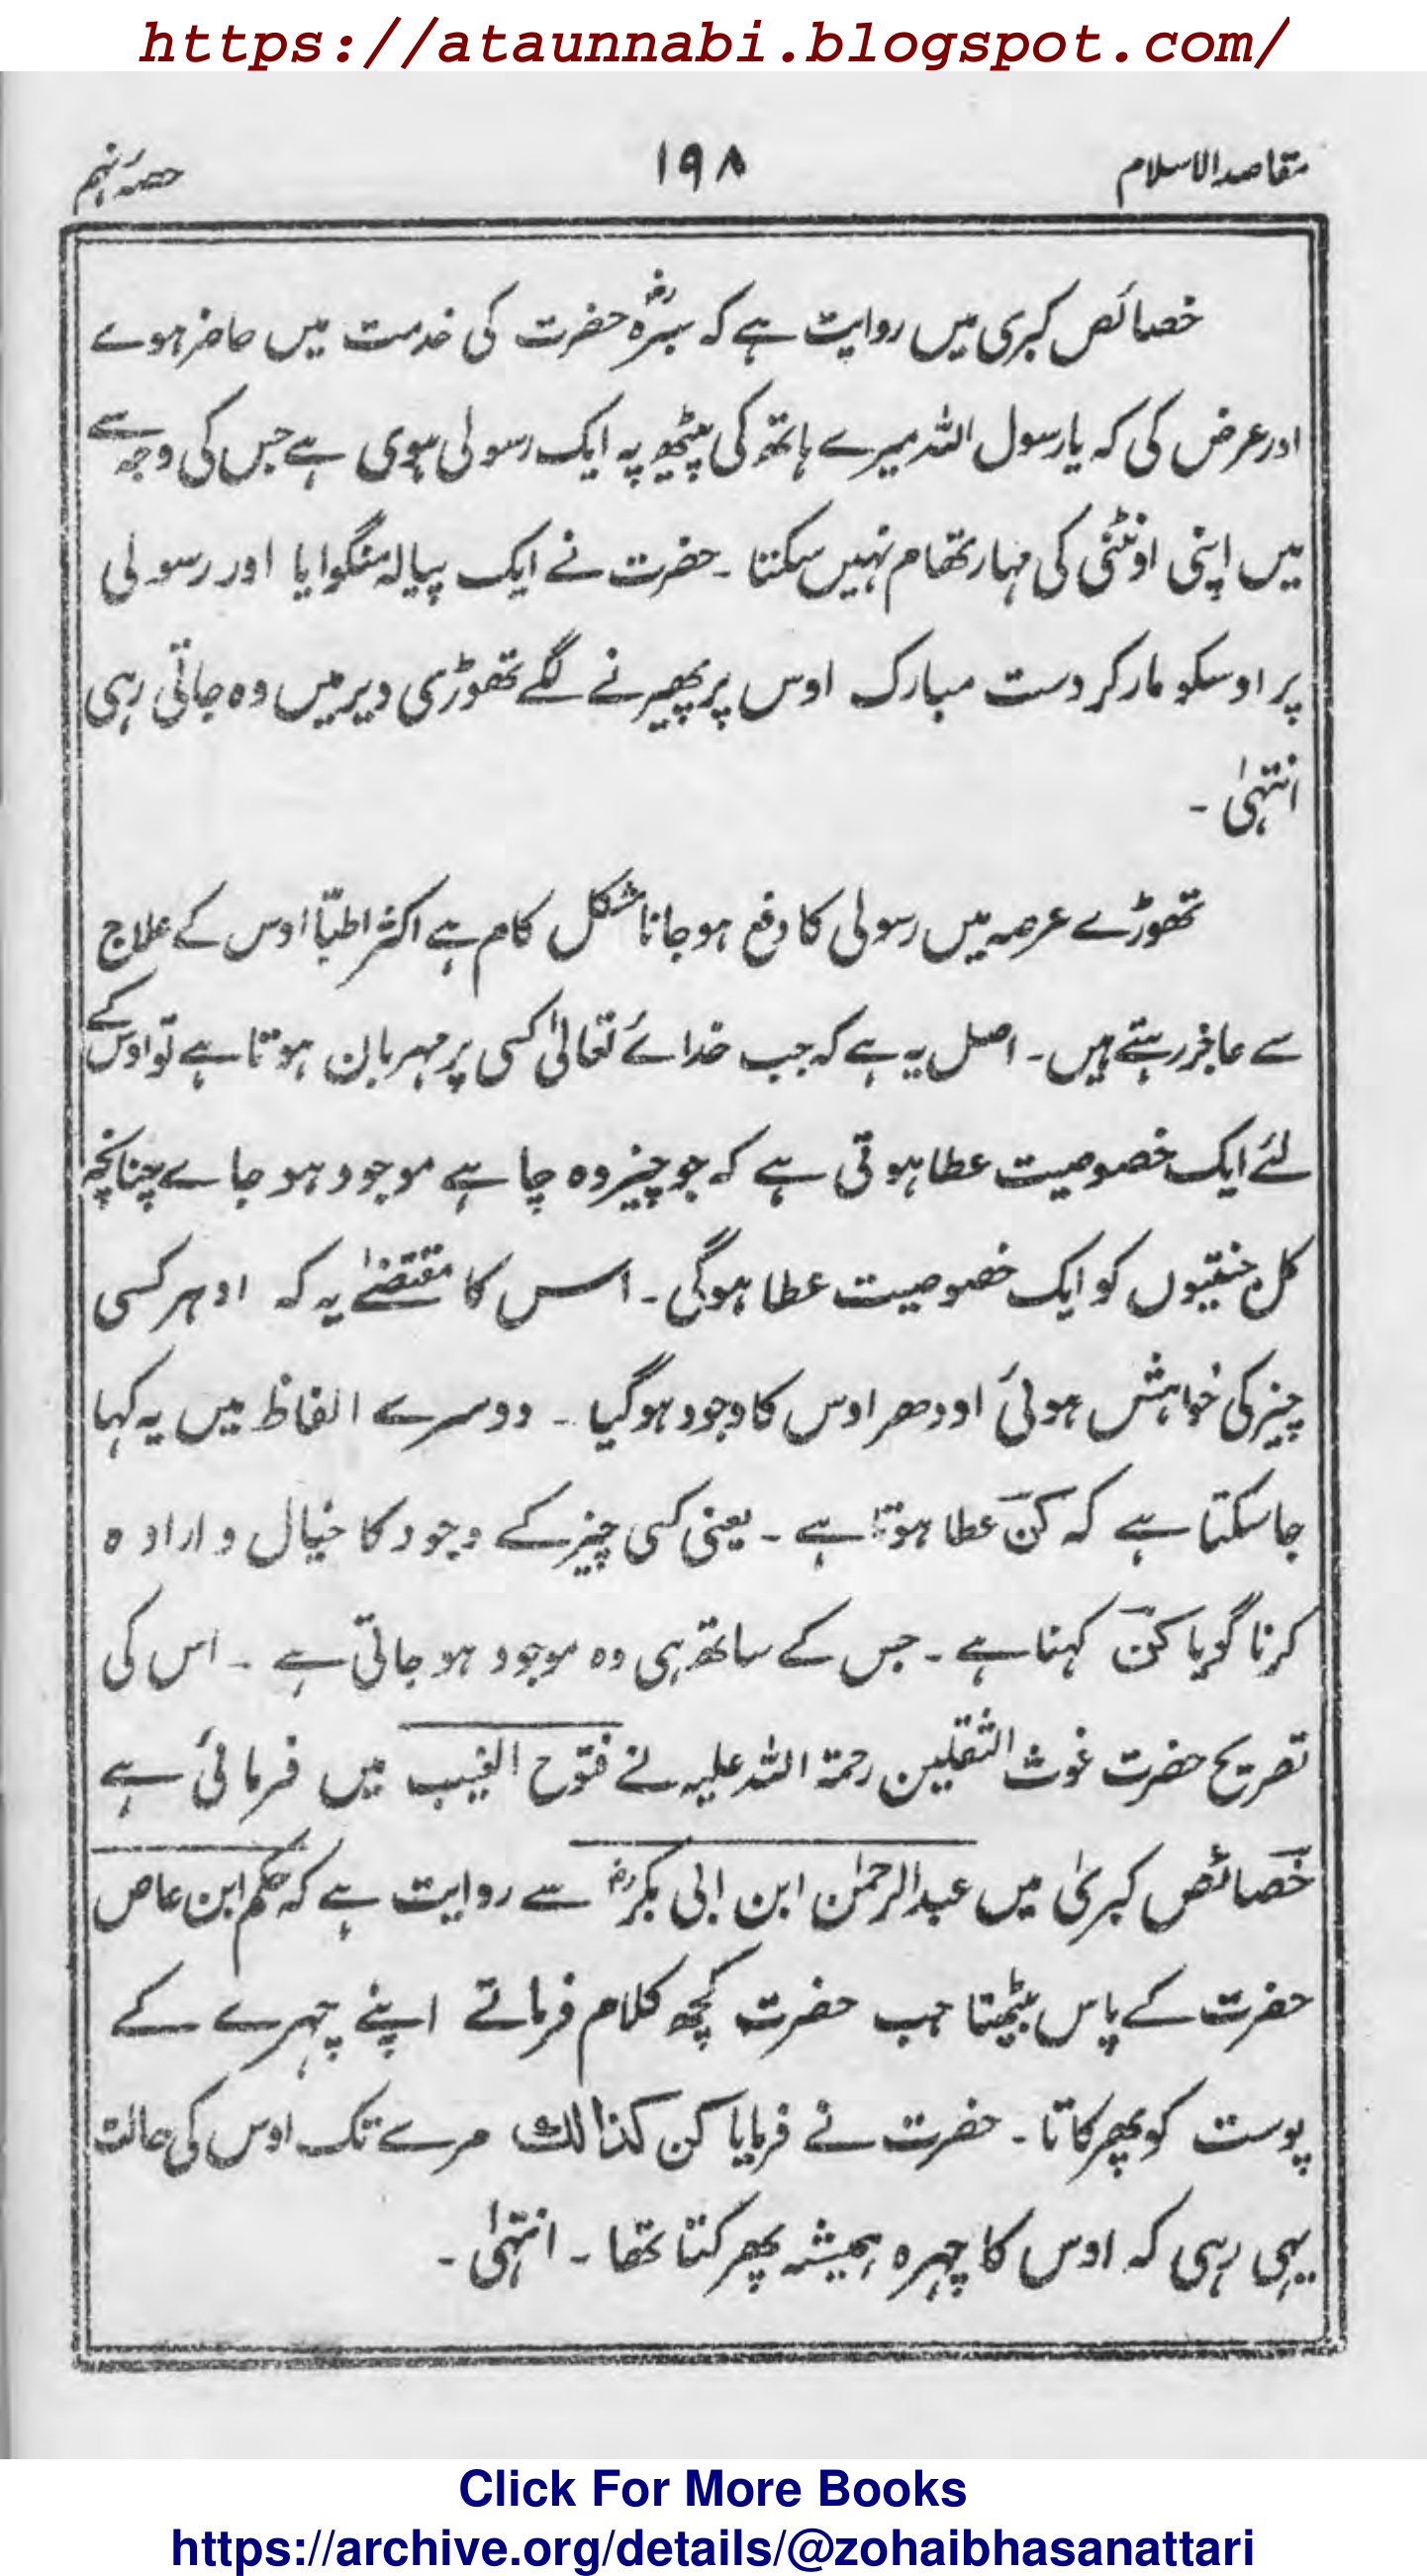 https://ataunnabi.blogspot.com/
مقاصد الاسلام ۱۹۸ حصہ نہم
خصائص کبری میں روایت ہے کہ سبرہؓ حضرت کی خدمت میں حاضر ہوے
اور عرض کی کہ یا رسول اللہ میرے ہاتھ کی پیٹھ پہ ایک رسولی ہوی ہے جس کی وجہ سے
میں اپنی اونٹنی کی مہار تھام نہیں سکتا ۔ حضرت نے ایک پیالہ منگوایا اور رسولی
پر اوسکو مار کر دست مبارک اوس پر پھیرنے لگے تھوڑی دیر میں وہ جاتی رہی
انتہیٰ ۔
تھوڑے عرصہ میں رسولی کا دفع ہو جانا مشکل کام ہے اکثر اطبّا اوس کے علاج
سے عاجز رہتے ہیں ۔ اصل یہ ہے کہ جب خدائے تعالیٰ کسی پر مہربان ہوتا ہے تو اوس کے
لئے ایک خصوصیت عطا ہوتی ہے کہ جو چیز وہ چاہے موجود ہو جاے چنانچہ
کل جنتیوں کو ایک خصوصیت عطا ہوگی ۔ اس کا مقتضیٰ یہ کہ ادہر کسی
چیز کی خواہش ہوئی اودھر اوس کا وجود ہوگیا ۔ دوسرے الفاظ میں یہ کہا
جا سکتا ہے کہ کن عطا ہوتا ہے ۔ یعنی کسی چیز کے وجود کا خیال و ارادہ
کرنا گویا کن کہنا ہے ۔ جس کے ساتھ ہی وہ موجود ہو جاتی ہے ۔ اس کی
تصریح حضرت غوث الثقلین رحمۃ اللہ علیہ نے فتوح الغیب میں فرمائی ہے
خصائص کبریٰ میں عبدالرحمٰن ابن ابی بکرؓ سے روایت ہے کہ حکم ابن عاص
حضرت کے پاس بیٹھتا جب حضرت کچھ کلام فرماتے اپنے چہرے کے
پوست کو پھرکاتا ۔ حضرت نے فرمایا کن کذالك مرے تک اوس کی حالت
یہی رہی کہ اوس کا چہرہ ہمیشہ پھرکتا تھا ۔ انتہیٰ ۔
Click For More Books
https://archive.org/details/@zohaibhasanattari